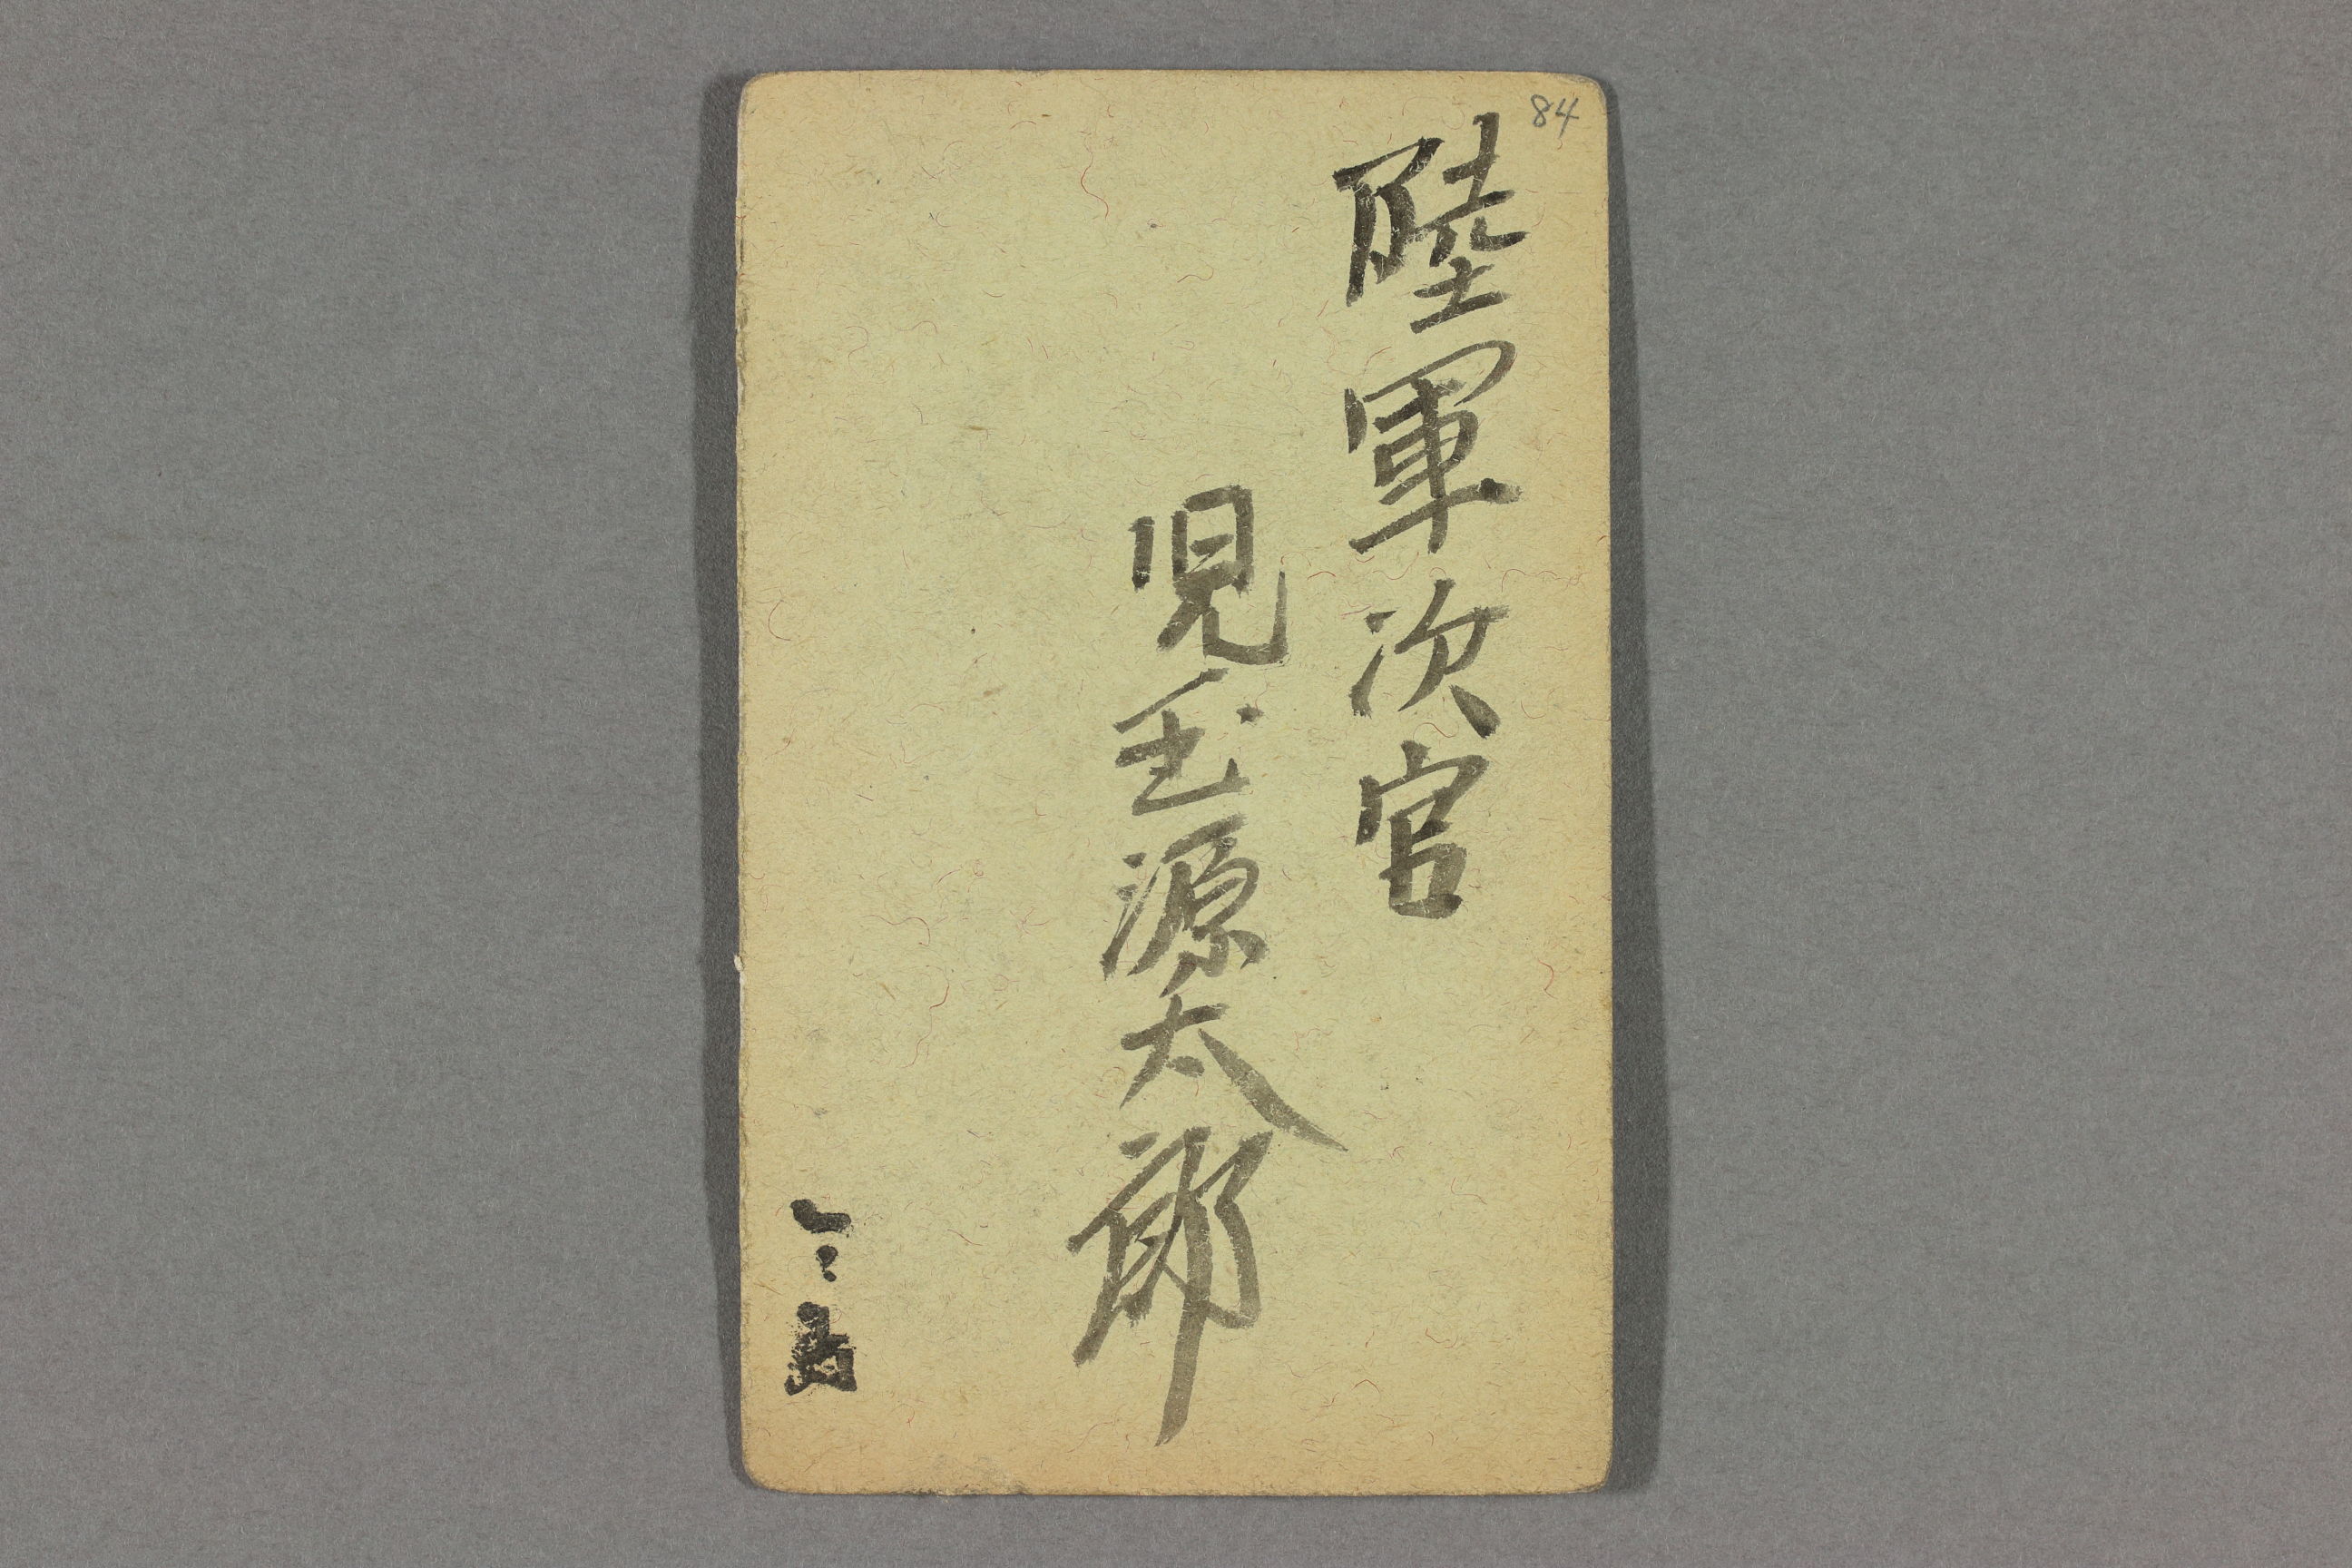 84
陸軍次官
児玉源太郎